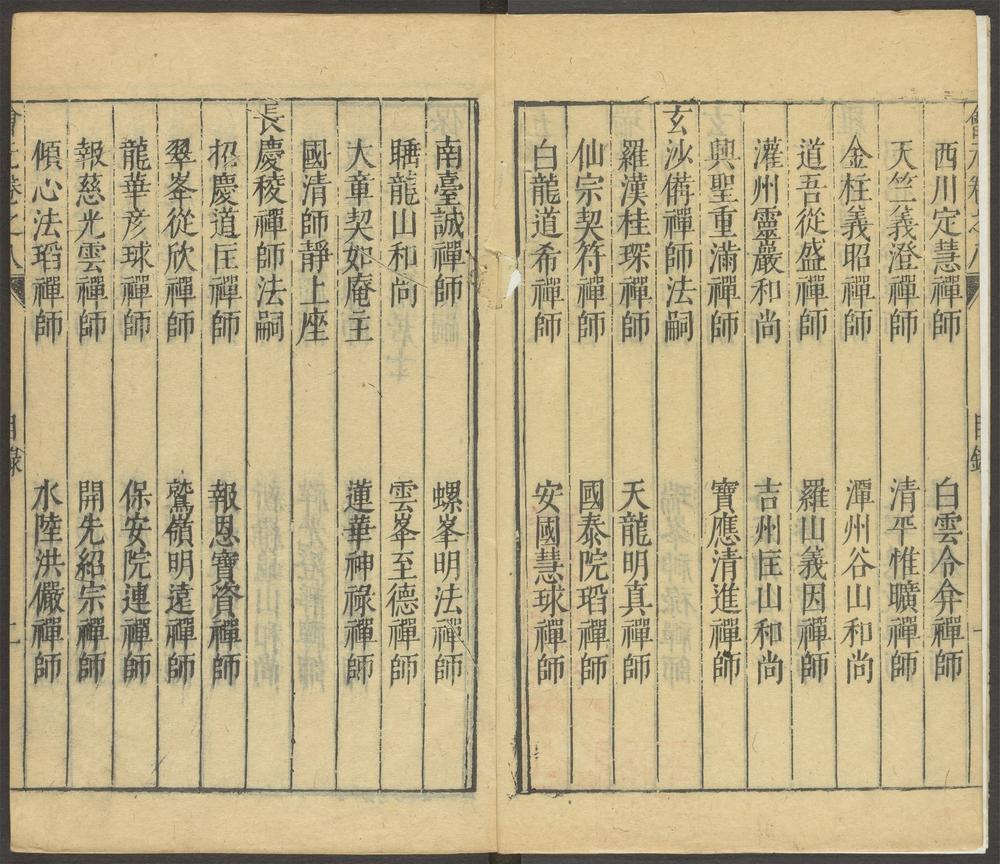 西川定慧禪師 白雲令弇禪師
天竺義澄禪師 清平惟曠禪師
金柱義昭禪師 潭州谷山和尚
道吾從盛禪師 羅山義因禪師
灌州靈巖和尚 吉州匡山和尚
興聖重滿禪師 寶應清進禪師
玄沙備禪師法嗣
羅漢桂琛禪師 天龍明真禪師
仙宗契符禪師 國泰院瑫禪師
白龍道希禪師 安國慧球禪師
南臺誠禪師 螺峯明法禪師
睡龍山和尚 雲峯至德禪師
大章契如庵主 蓮華神祿禪師
國清師靜上座
長慶稜禪師法嗣
招慶道匡禪師 報恩寶資禪師
翠峯從欣禪師 鷲嶺明遠禪師
龍華彥球禪師 保安院連禪師
報慈光雲禪師 開先紹宗禪師
傾心法瑫禪師 水陸洪儼禪師
目錄